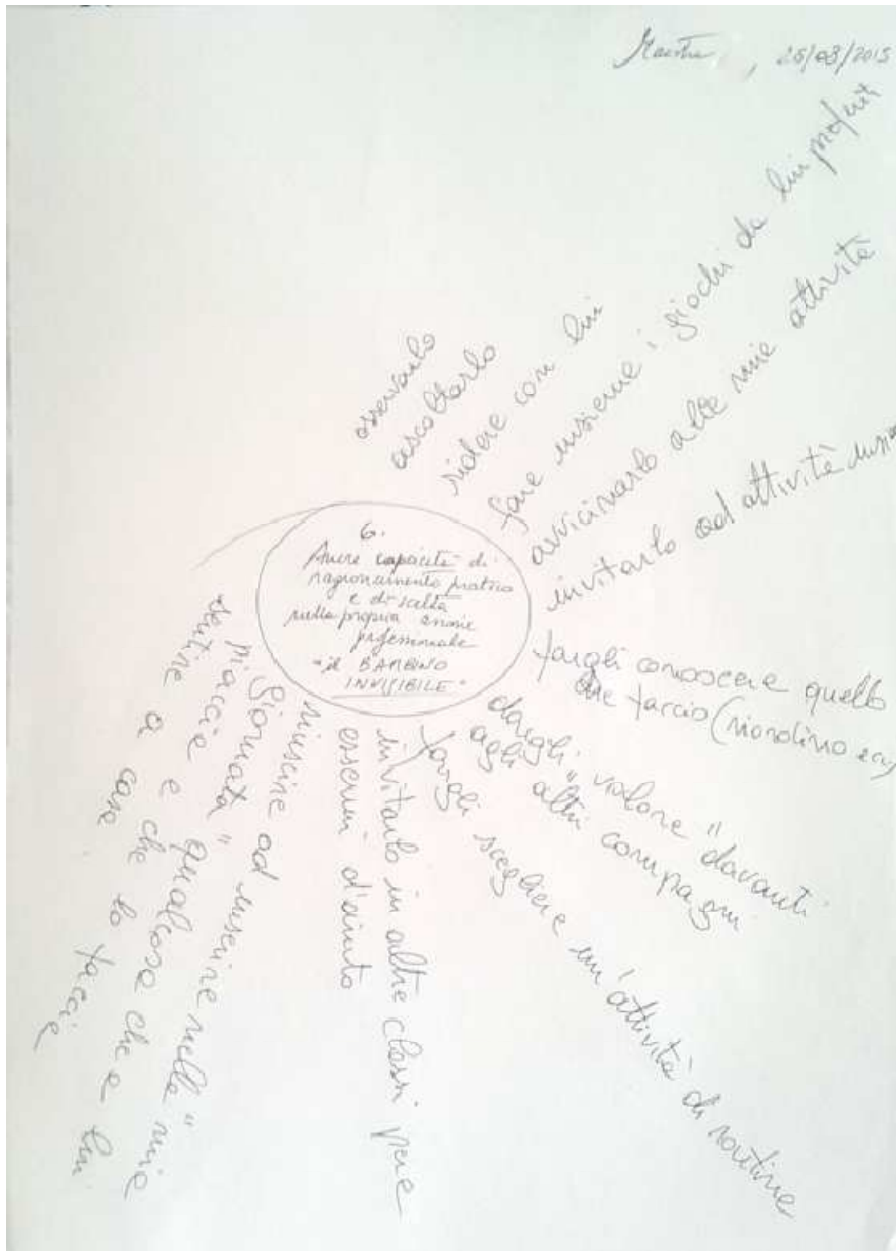 Maestra, 26/03/2015
6.
Avere capacità di
ragionamento pratico
e di scelta
nella propria
professionale
"il BAMBINO
INVISIBILE"
osservarlo
ascoltarlo
ridere con lui
fare insieme i giochi da lui preferiti
avvicinarlo alle mie attività
invitarlo ad attività
fargli conoscere quello
che faccio (riordino ecc)
dargli "valore" davanti
agli altri compagni
fargli scegliere un'attività di routine
invitarlo in altre classi per
essermi d'aiuto
riuscire ad inserire nella "mia
giornata" qualcosa che a lui
piaccia e che lo faccia
sentire a casa